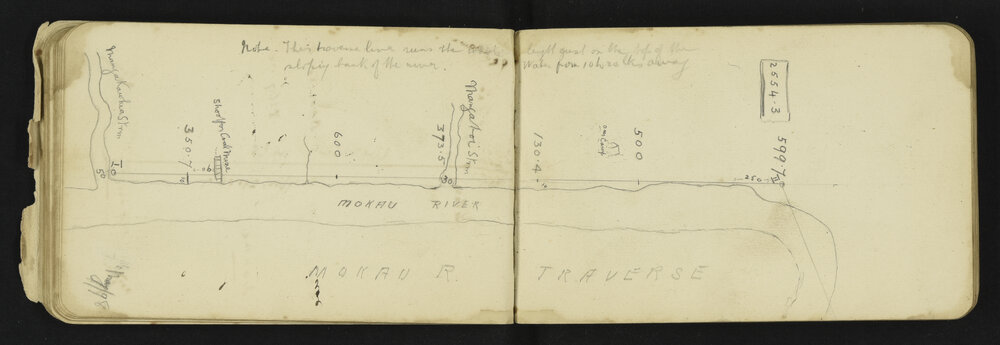 Note. This traverse line runs the lengt just on the top of the
sloping bank of the river. Water from 10 to 20 lks away
Stm
Shoot for Coal Mine
350.7
I 0
50
600
373.5
30
Stm
130.4
our Camp
500
250
599.7
2554.3
MOKAU RIVER
MOKAU R. TRAVERSE